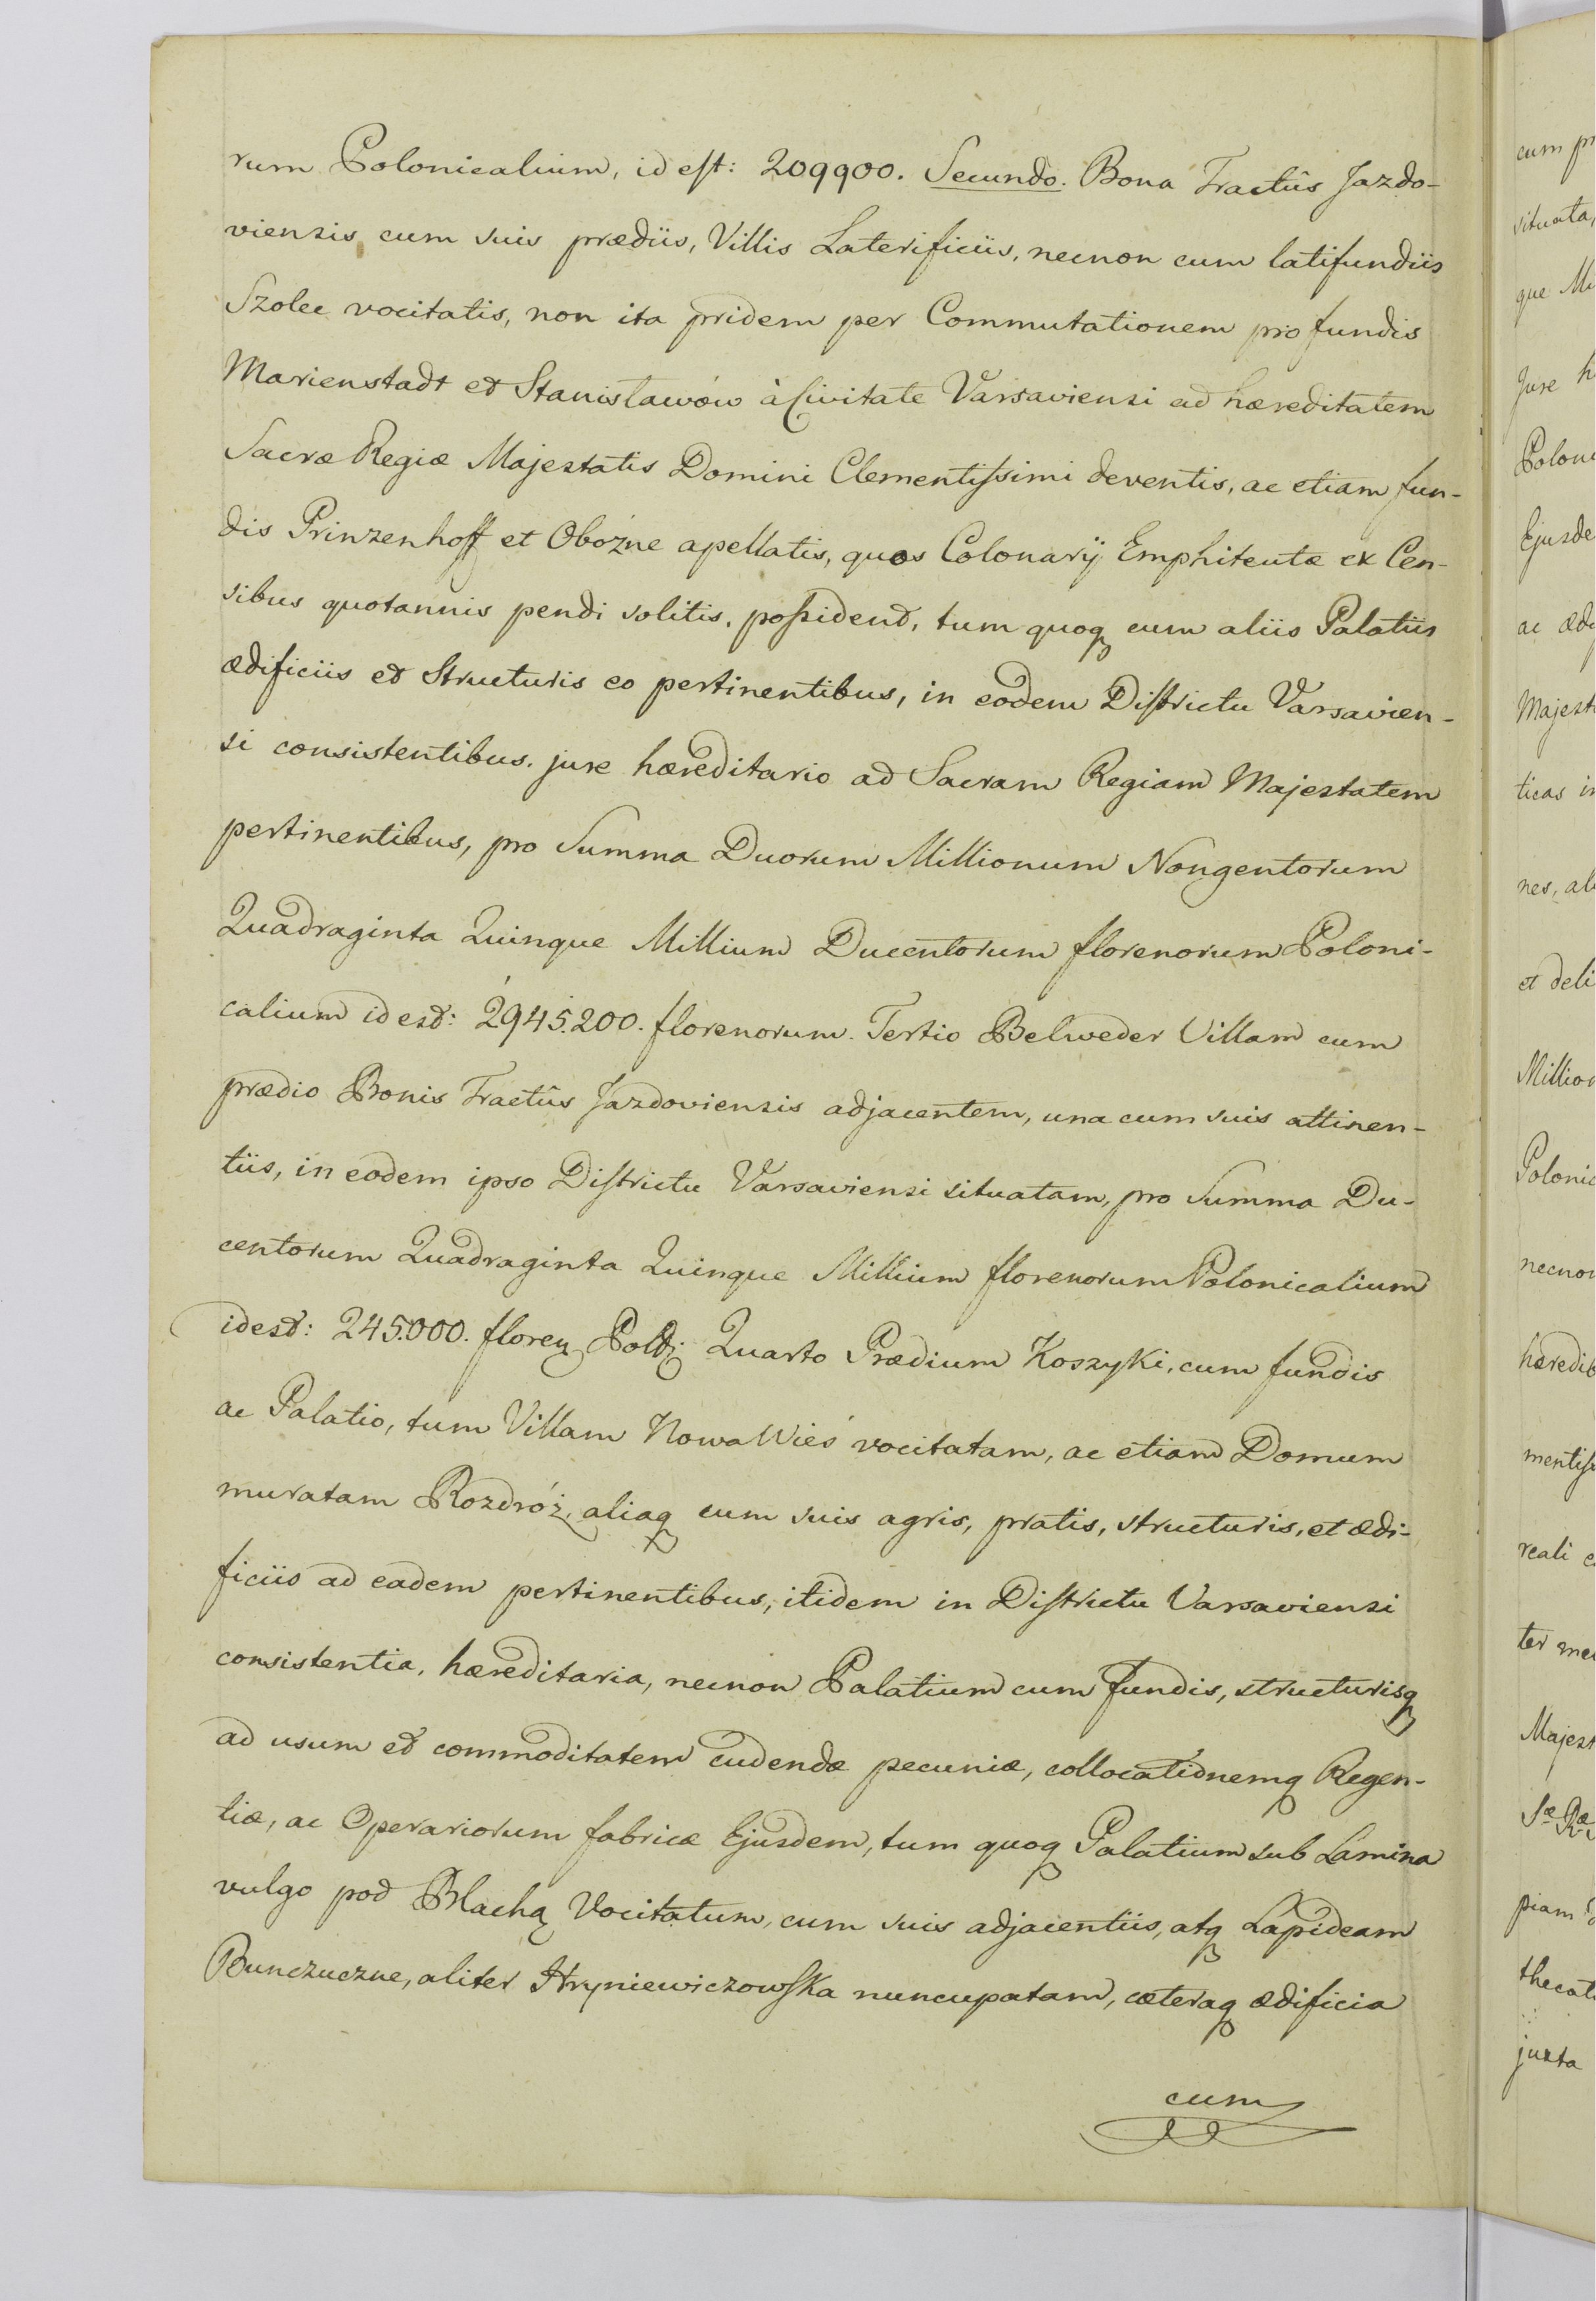 rum Polonicalium, id est: 209900. Secundo. Bona Tractûs Jazdo-
viensis cum suis prædiis, Villis Laterificiis, necnon cum latifundiis
Szolec vocitatis, non ita pridem per Commutationem pro fundis
Marienstadt et Stanisławów à Civitate Varsaviensi ad hæreditatem
Sacræ Regiæ Majestatis Domini Clementissimi deventis, ac etiam fun-
dis Prinzenhoff et Obożne apellatis, quos Colonarij Emphiteutæ ex Cen-
sibus quotannis pendi solitis, possidend, tum quoq cum aliis Palatiis
ædificiis et Structuris eo pertinentibus, in eodem Districtu Varsavien-
si consistentibus. jure hæreditario ad Sacram Regiam Majestatem
pertinentibus, pro Summa Duorum Millionum Nongentorum
Quadraginta Quinque Millium Ducentorum florenorum Poloni-
calium id est: 2945.200. florenorum. Tertio Belweder Villam cum
prædio Bonis Tractûs Jazdoviensis adjacentem, una cum suis attinen-
tiis, in eodem ipso Districtu Varsaviensi situatam, pro Summa Du-
centorum Quadraginta Quinque Millium florenorum Polonicalium
id est: 245.000. floren Pold; Quarto Prædium Koszyki, cum fundis
ac Palatio, tum Villam Nowa Wieś vocitatam, ac etiam Domum
muratam Rozdróż, aliaq cum suis agris, pratis, structuris, et ædi-
ficiis ad eadem pertinentibus, itidem in Districtu Varsaviensi
consistentia, hæreditaria, necnon Palatium cum fundis, structurisq
ad usum et commoditatem cudendæ pecuniæ, collocationemq Regen-
tiæ, ac Operariorum fabricæ Ejusdem, tum quoq Palatium sub Lamina
vulgo pod Blachą Vocitatum, cum suis adjacentiis, atq Lapideam
Bunczuczne, aliter Hryniewiczowska nuncupatam, cæteraq ædificia
cum
cum pr
situata,
que Mi
Jure h
Poloni
Ejusde
ac ædi
Majest
ticas in
nes, al
et deli
Million
Polonic
necnon
hæredib
mentiss
reali c
ter me
Majest
piam
thecat
juxta